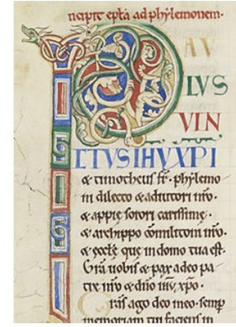 ncipit epła ad phylemonem.
PAV
LVS
VIN
CTVS IHV XPI
& timotheus fr̄ phylemo
ni dilecto & adiutori nr̄o.
& appie sorori carissime.
& archippo cōmilitoni nr̄o.
& ęccłę que in domo tua est.
Gr̄a uobis & pax a deo pa
tre nr̄o & dn̄o ihū xp̄o.
ras ago deo meo semp̄
memoriam tui faciens in